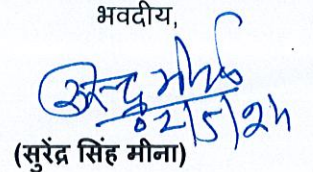 भवदीय,
02/5/24
(सुरेंद्र सिंह मीना)